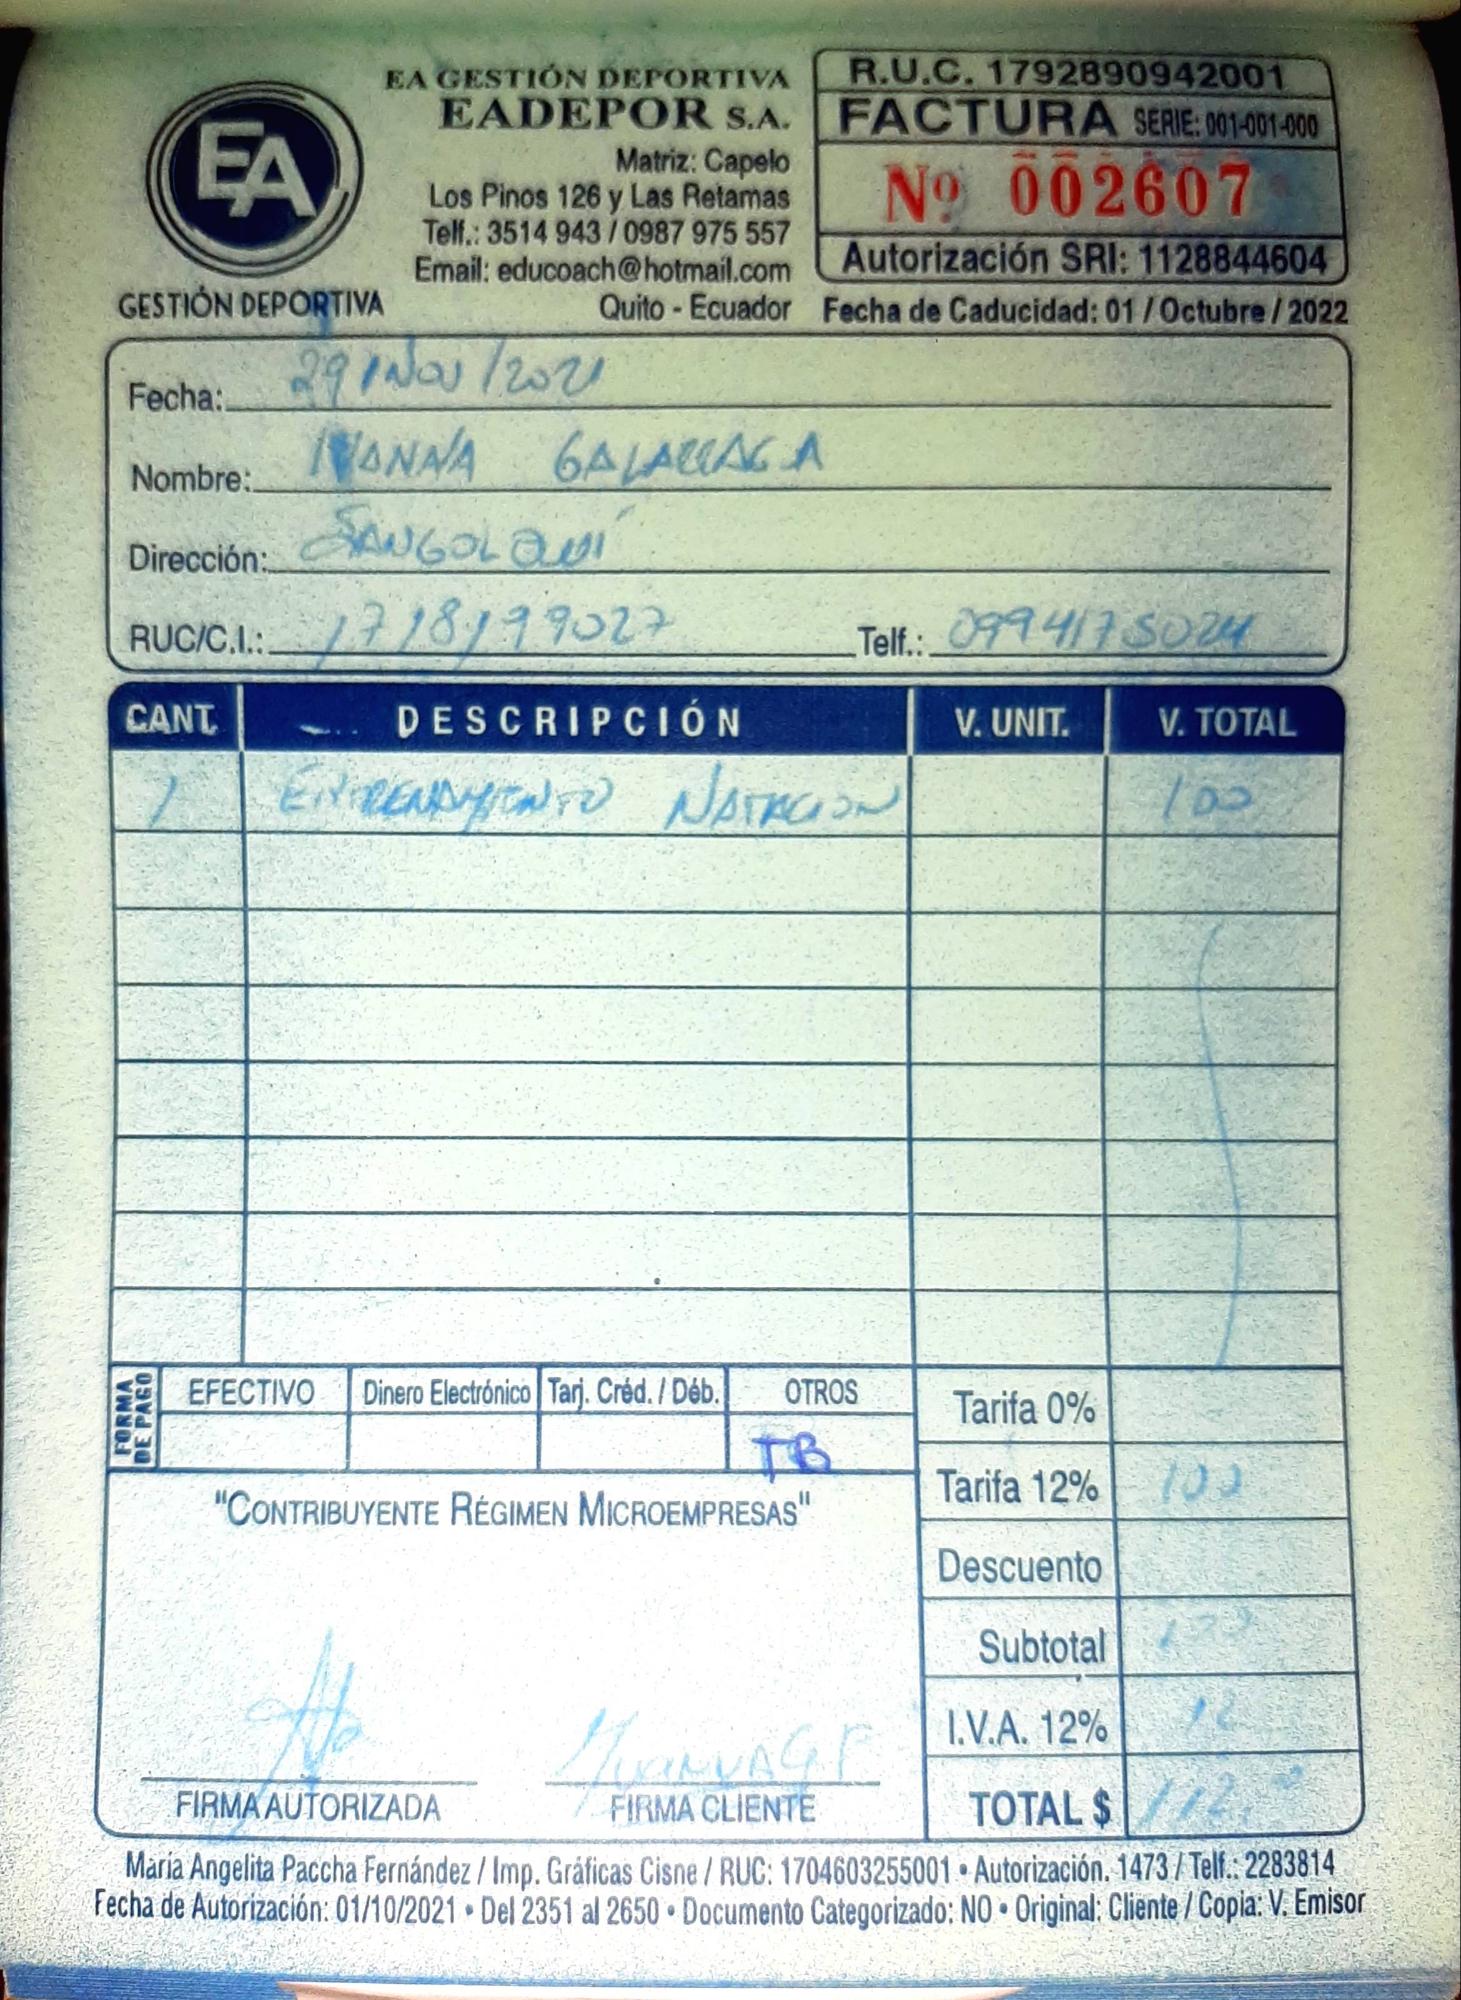 EA
GESTIÓN DEPORTIVA
EA GESTIÓN DEPORTIVA
EADEPOR S.A.
Matriz: Capelo
Los Pinos 126 y Las Retamas
Telf.: 3514 943 / 0987 975 557
Email: educoach@hotmail.com
Quito - Ecuador
R.U.C. 1792890942001
FACTURA SERIE: 001-001-000
Nº 002607
Autorización SRI: 1128844604
Fecha de Caducidad: 01 / Octubre / 2022
Fecha: 29/NOV/2021
Nombre: IVANNA GALARRAGA
Dirección: SANGOLQUÍ
RUC/C.I.: 1718199027 Telf.: 0994175024
CANT. DESCRIPCIÓN V. UNIT. V. TOTAL
1 ENTRENAMIENTO NATACION 100
FORMA DE PAGO
EFECTIVO Dinero Electrónico Tarj. Créd. / Déb. OTROS
TB
Tarifa 0%
Tarifa 12% 100
Descuento
Subtotal 100
I.V.A. 12% 12
TOTAL $ 112.
"CONTRIBUYENTE RÉGIMEN MICROEMPRESAS"
IVANNA G F
FIRMA AUTORIZADA FIRMA CLIENTE
María Angelita Paccha Fernández / Imp. Gráficas Cisne / RUC: 1704603255001 • Autorización. 1473 / Telf.: 2283814
Fecha de Autorización: 01/10/2021 • Del 2351 al 2650 • Documento Categorizado: NO • Original: Cliente / Copia: V. Emisor